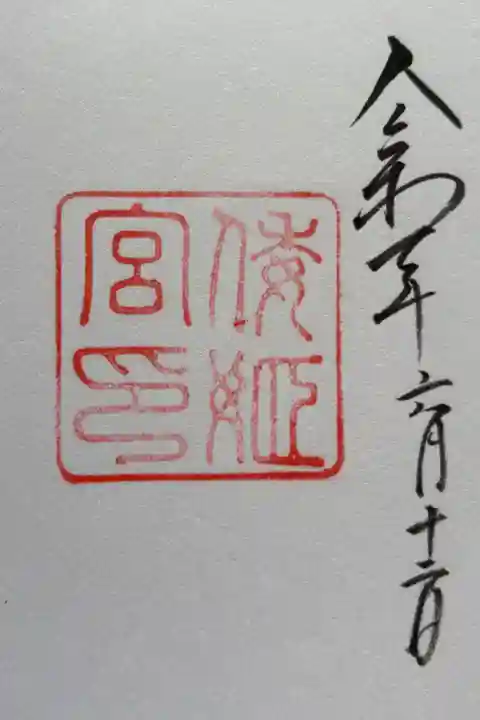 令和元年六月十二日
倭姫
宮印